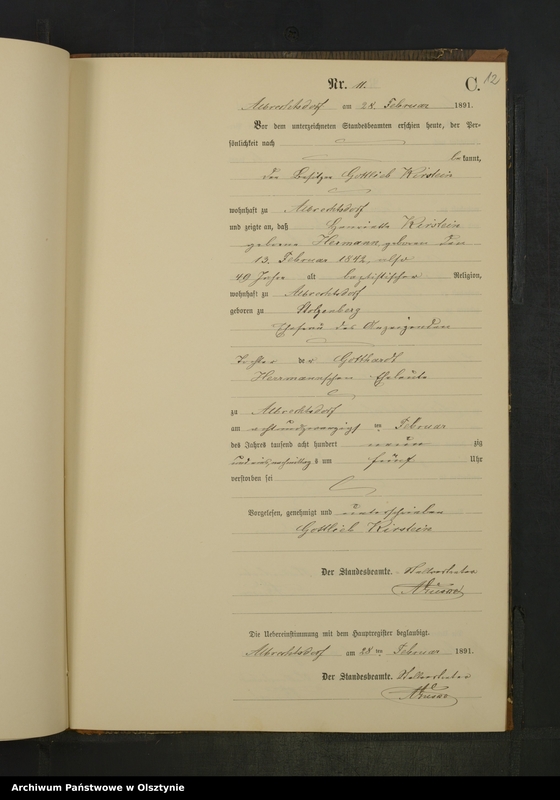 12
Nr. 11. C.
Albrechtsdorf am 28. Februar 1891.
Vor dem unterzeichneten Standesbeamten erschien heute, der Per-
sönlichkeit nach
bekannt,
der Besitzer Gottlieb Kirstein
wohnhaft zu Albrechtsdorf
und zeigte an, daß Henriette Kirstein
geborene Hermann, geboren den
13. Februar 1842, also
49 Jahre alt baptistischer Religion,
wohnhaft zu Albrechtsdorf
geboren zu Stolzenberg
Ehefrau des Anzeigenden
Tochter der Gotthardt
Herrmannschen Eheleute
zu Albrechtsdorf
am achtundzwanzigsten Februar
des Jahres tausend acht hundert neun zig
und eins, nachmittags um fünf Uhr
verstorben sei
Vorgelesen, genehmigt und unterschrieben
Gottlieb Kirstein
Der Standesbeamte.
Die Uebereinstimmung mit dem Hauptregister beglaubigt.
Albrechtsdorf am 28 ten Februar 1891.
Der Standesbeamte.
Archiwum Państwowe w Olsztynie